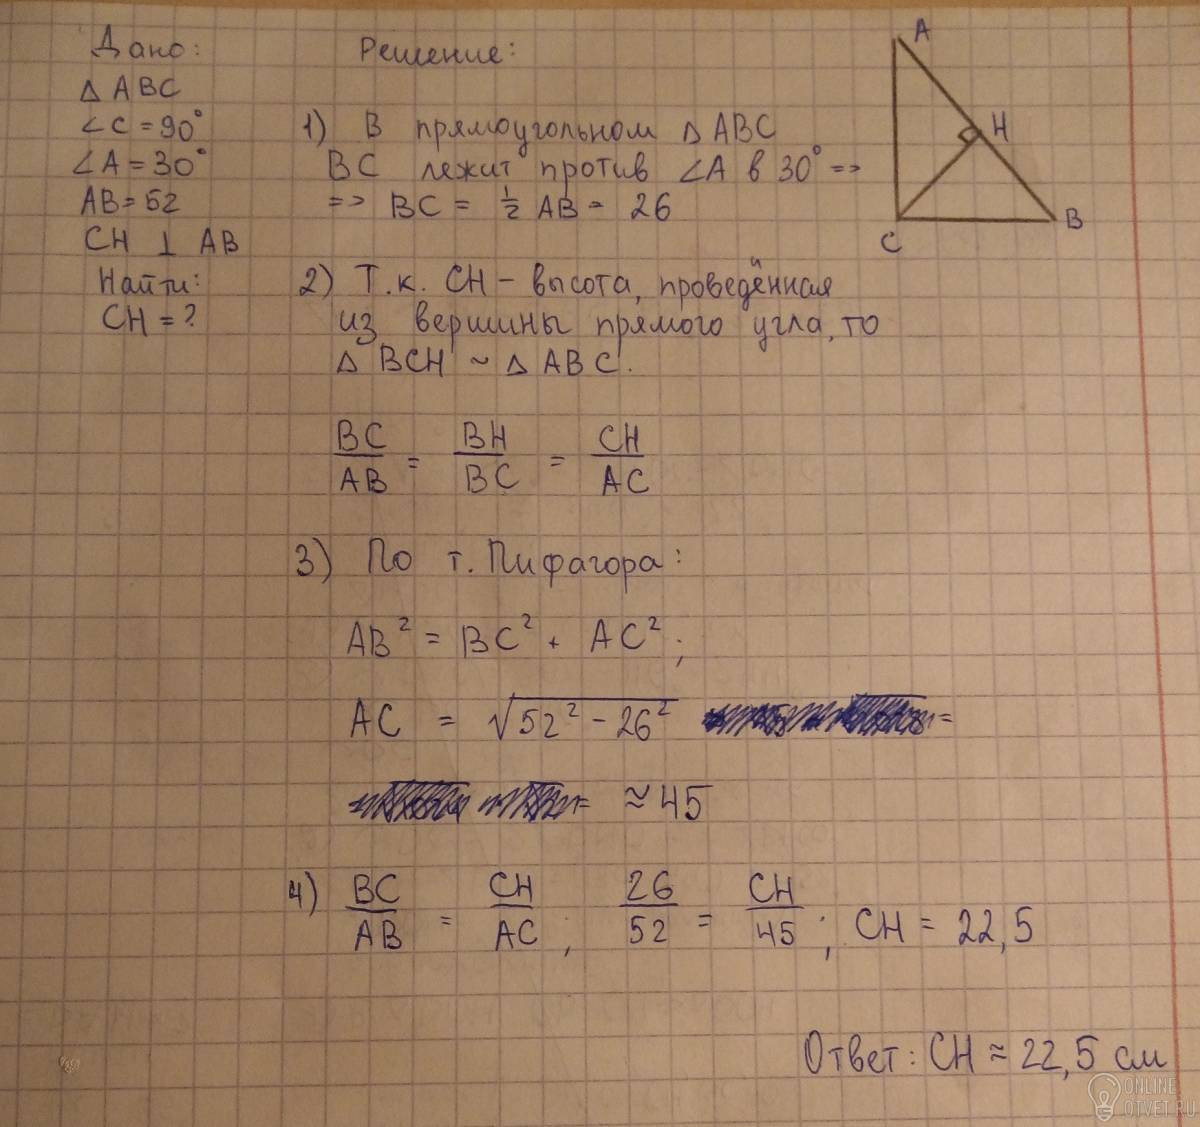 Дано:
△ ABC
∠C = 90°
∠A = 30°
AB = 52
CH ⊥ AB
Найти:
CH = ?
Решение:
1) В прямоугольном △ ABC
BC лежит против ∠A в 30° =>
=> BC = 1/2 AB = 26
2) Т.к. CH – высота, проведённая
из вершины прямого угла, то
△ BCH ~ △ ABC.
BC/AB = BH/BC = CH/AC
3) По т. Пифагора:
AB² = BC² + AC²;
AC = √52² – 26² =
= ≈ 45
4) BC/AB = CH/AC; 26/52 = CH/45; CH = 22,5
Ответ: CH ≈ 22,5 см
A
H
B
C
ONLINE
OTVET.RU